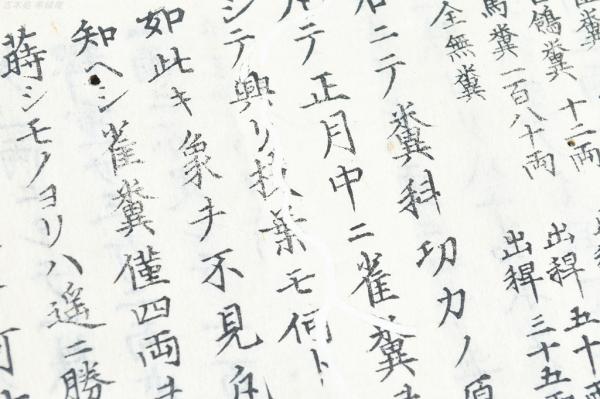 鴿糞 十二両 出稈 五十両
馬糞一百八十両 出稈 三十五両
全無糞
ニテ糞科功力ノ原
テ正月中ニ雀糞
シテ興リ枝葉モ何ト
如此キ象ヲ不見
知ヘシ雀糞僅四両
蒔シモノヨリハ遙ニ勝
可